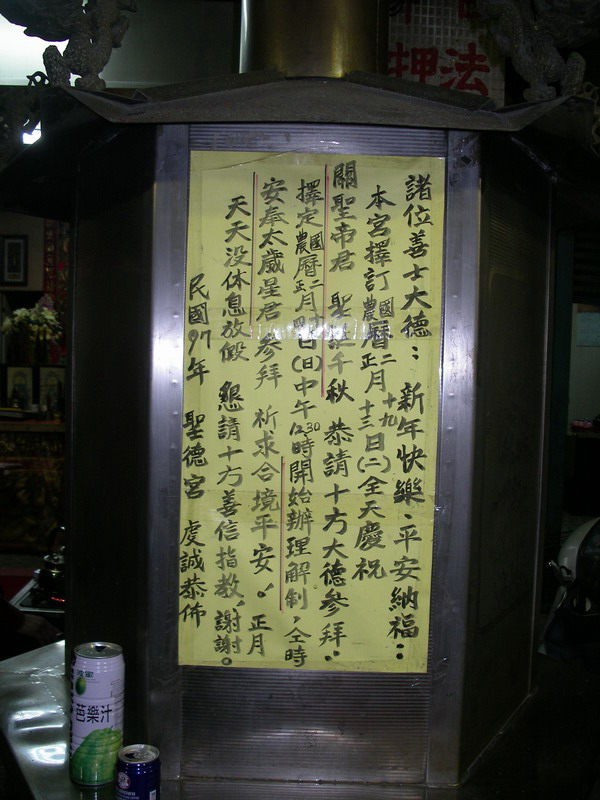 諸位善士大德:新年快樂、平安納福:
本宮擇訂國曆二月十九農曆正月十三日(二)全天慶祝
關聖帝君 聖誕千秋 恭請十方大德參拜:
擇定國曆二月農曆正月日(日)中午12時30開始辦理解制,仝時
安奉太歲星君參拜 祈求合境平安。正月
天天没休息放假 懇請十方善信指教,謝謝。
民國97年 聖德宮 虔誠恭佈
押法
芭樂汁